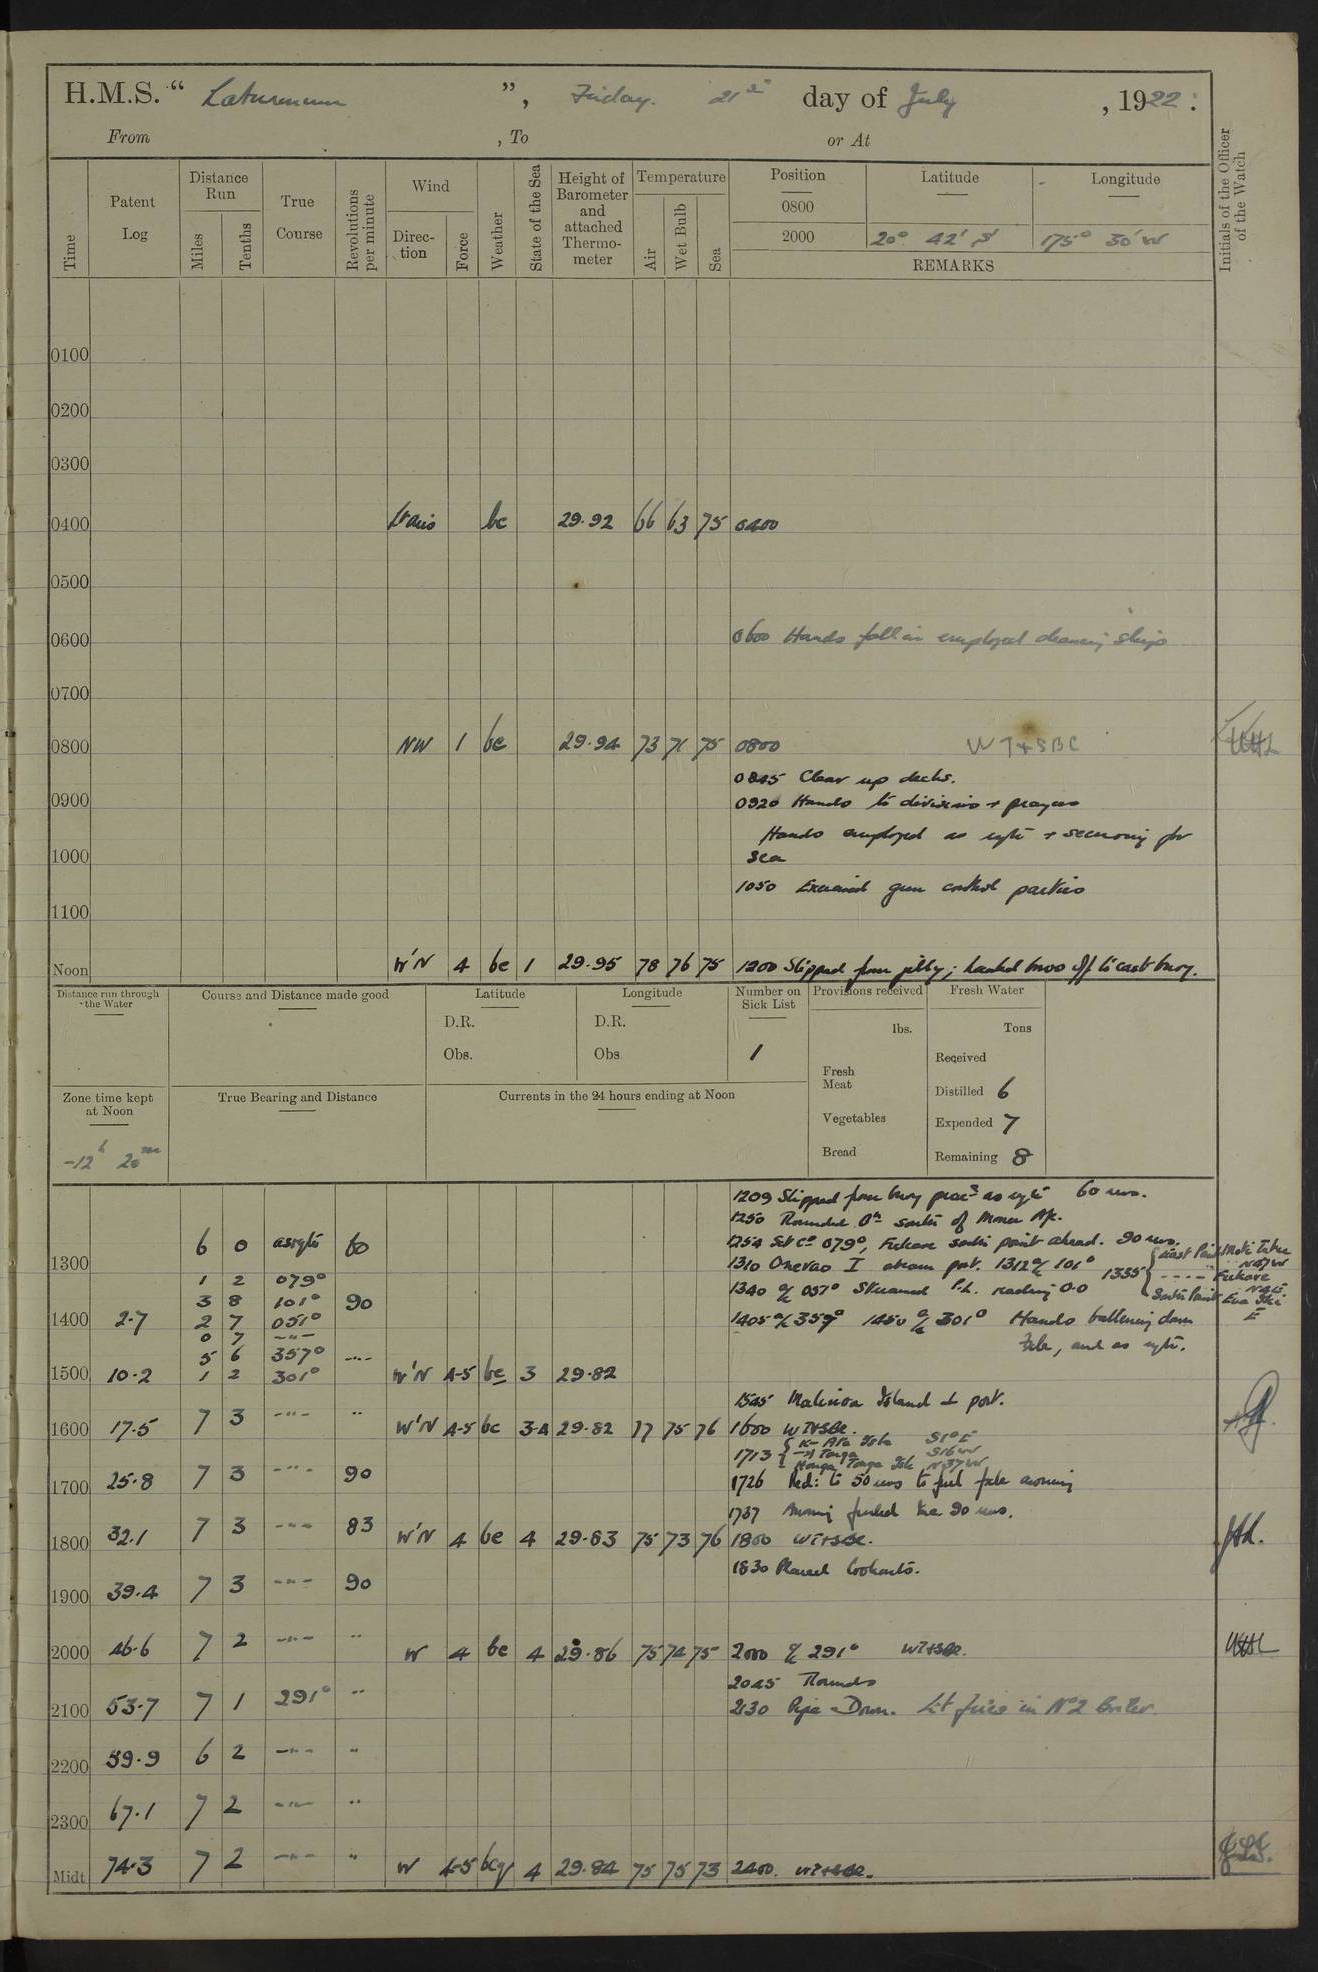 H.M.S. “ Laburnum ”, Friday. 21st day of July, 1922:
From , To or At
Time
Patent Log
Distance Run
Miles
Tenths
True Course
Revolutions per minute
Wind
Direc-tion
Force
Weather
State of the Sea
Height of Barometer and attached Thermo-meter
Temperature
Air
Wet Bulb
Sea
Position Latitude Longitude
0800
2000 20° 42' S 175° 30' W
REMARKS
Initials of the Officer of the Watch
0100
0200
0300
0400 bc 29.92 66 63 75 0400
0500
0600 0600 Hands fall in employed cleaning ship
0700
0800 NW 1 bc 29.94 73 71 75 0800 WT+SBC
0845 Clear up decks.
0900 0920 Hands to divisions + prayers
Hands employed as reqte + securing for
1000 sea
1050 Exercised gun control parties
1100
Noon W'N 4 bc 1 29.95 78 76 75 1200 Slipped from jetty; hauled off to east buoy.
Distance run through the Water
Course and Distance made good
Latitude
D.R.
Obs.
Longitude
D.R.
Obs
Number on Sick List
1
Provisions received
lbs.
Fresh Meat
Vegetables
Bread
Fresh Water
Tons
Received
Distilled 6
Expended 7
Remaining 8
Zone time kept at Noon
-12h 20m
True Bearing and Distance
Currents in the 24 hours ending at Noon
1209 Slipped from buoy proc'd as reqte 60 revs.
1250 Rounded
1300 6 0 as reqte 60 1254 Set Co 079°, point ahead. 90 revs.
1 2 079° 1310 Onevao I abeam port. 1312 a/c 101° 1335 East Point
3 8 101° 90 1340 a/c 051° Streamed P.L. reading 0.0
1400 2.7 2 7 051° 1405 a/c 357° 1450 a/c 301° Hands
0 7 -"-
5 6 357° -"- and as reqte.
1500 10.2 1 2 301° W'N 4-5 bc 3 29.82
1545 Malinoa Island ⊥ port.
1600 17.5 7 3 -"- " W'N 4-5 bc 3-4 29.82 77 75 76 1600 WT+SBC.
1713 Ata Isle S1°E
S16W
Honga Tonga Isle N37W
1700 25.8 7 3 -"- 90 1726 Red: to 50 revs
1737 90 revs.
1800 32.1 7 3 -"- 83 W'N 4 bc 4 29.83 75 73 76 1800 WT+SBC.
1830 Placed lookouts.
1900 39.4 7 3 -"- 90
2000 46.6 7 2 -"- " W 4 bc 4 29.86 75 74 75 2000 a/c 291° WT+SBC.
2045 Rounds
2100 53.7 7 1 291° " 2130 Pipe Down. Lit fires in No 2 boiler.
2200 59.9 6 2 -"- "
2300 67.1 7 2 -"- "
Midt 74.3 7 2 -"- " W 4-5 bcq 4 29.84 75 75 73 2400. WT+SBC.